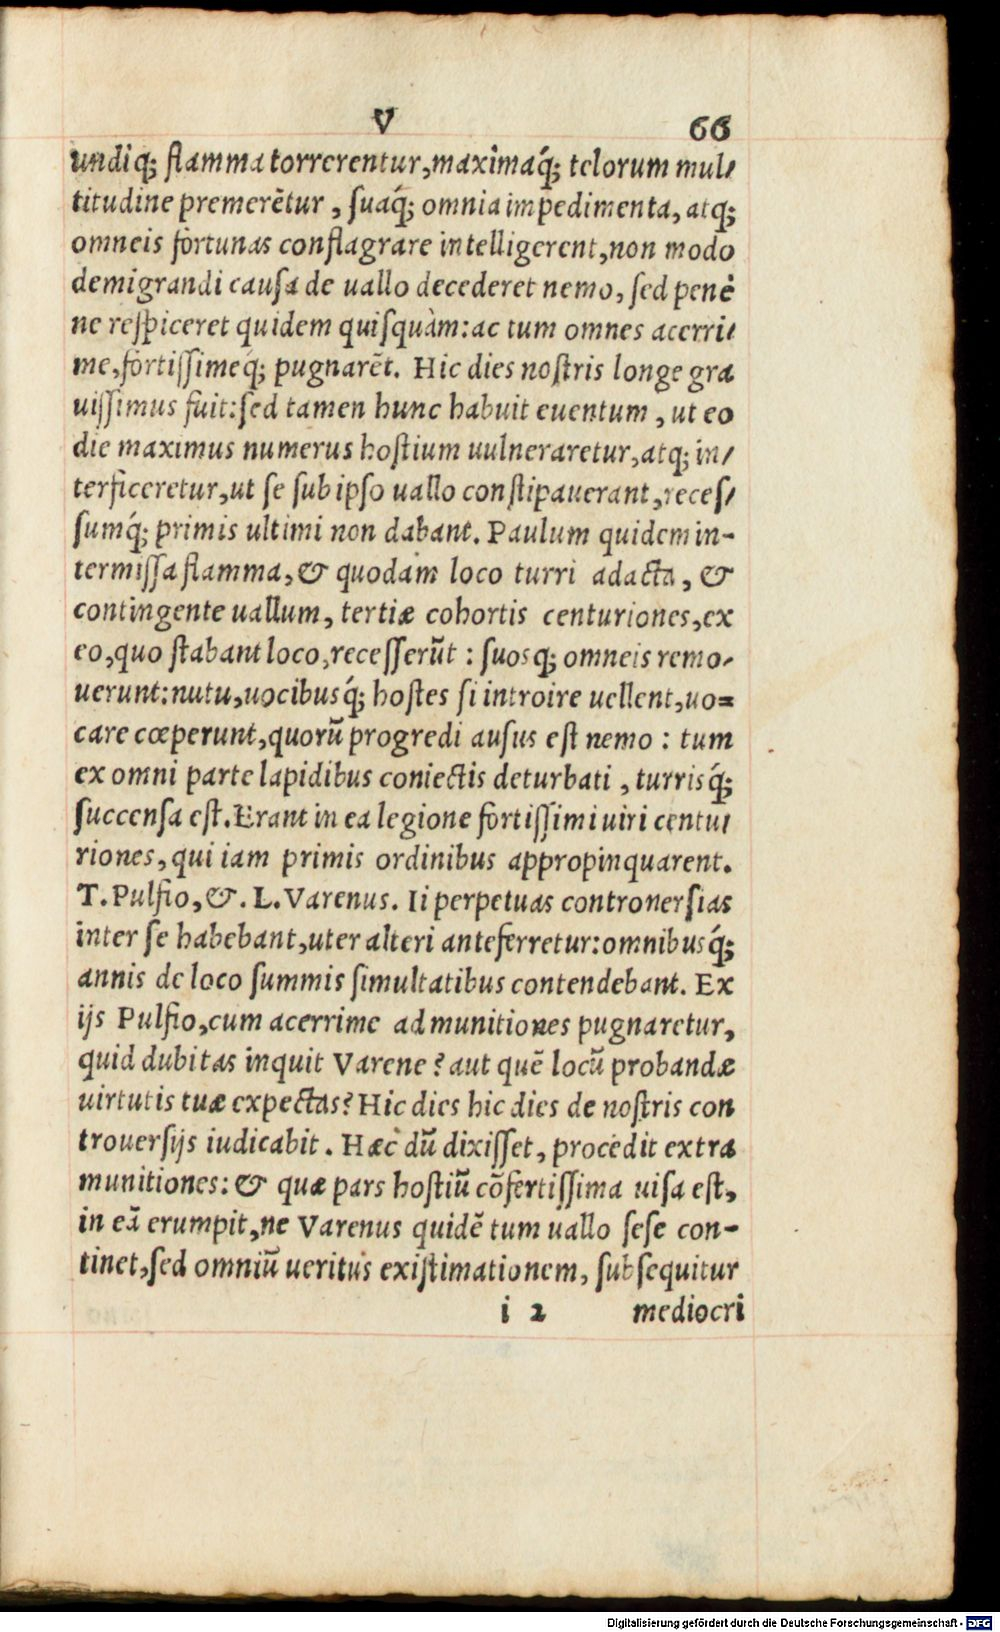 V 66
undiq; flamma torrerentur, maximaq́; telorum mul⸗
titudine premerẽtur, ſuaq́; omnia impedimenta, atq;
omneis fortunas conflagrare intelligerent, non modo
demigrandi cauſa de uallo decederet nemo, ſed penè
ne reſpiceret quidem quiſquàm: ac tum omnes acerri⸗
me, fortiſſimeq́; pugnarẽt. Hic dies noſtris longe gra
uiſſimus fuit: ſed tamen hunc habuit euentum, ut eo
die maximus numerus hoſtium uulneraretur, atq; in⸗
terficeretur, ut ſe ſub ipſo uallo conſtipauerant, receſ⸗
ſumq́; primis ultimi non dabant. Paulum quidem in-
termiſſa flamma, & quodam loco turri adacta, &
contingente uallum, tertiæ cohortis centuriones, ex
eo, quo ſtabant loco, receſſerũt: ſuosq; omneis remo⸗
uerunt: nutu, uocibusq́; hoſtes ſi introire uellent, uo=
care cœperunt, quorũ progredi auſus eſt nemo: tum
ex omni parte lapidibus coniectis deturbati, turrisq́;
ſuccenſa eſt. Erant in ea legione fortiſſimi uiri centu⸗
riones, qui iam primis ordinibus appropinquarent.
T. Pulfio, &. L. Varenus. Ii perpetuas controuerſias
inter ſe habebant, uter alteri anteferretur: omnibusq́;
annis de loco ſummis ſimultatibus contendebant. Ex
ijs Pulfio, cum acerrime ad munitiones pugnaretur,
quid dubitas inquit Varene? aut quẽ locũ probandæ
uirtutis tuæ expectas? Hic dies hic dies de noſtris con
trouerſijs iudicabit. Hæc dũ dixiſſet, procedit extra
munitiones: & quæ pars hoſtiũ cõfertiſſima uiſa eſt,
in eã erumpit, ne Varenus quidẽ tum uallo ſeſe con-
tinet, ſed omniũ ueritus exiſtimationem, ſubſequitur
i 2 mediocri
Digitalisierung gefördert durch die Deutsche Forschungsgemeinschaft - DFG